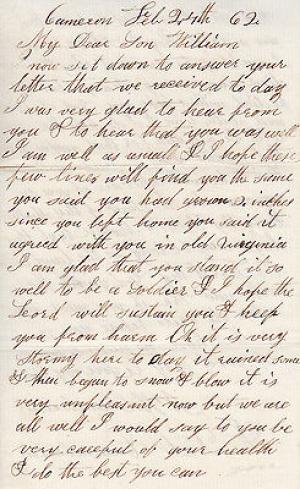 Cameron Feb 24th 62
My Dear Son William
now sit down to answer your
letter that we received to day
I was very glad to hear from
you & to hear that you was well
I am well as usual & I hope these
few lines will find you the same
you said you had grown 2 inches
since you left home you said it
agreed with you in old virginia
I am glad that you stand it so
well to be a soldier & I hope the
Lord will sustain you & keep
you from harm Oh it is very
stormy here to day it rained some
& then begun to snow & blow it is
very unpleasant now but we are
all well I would say to you be
very careful of your health
& do the best you can